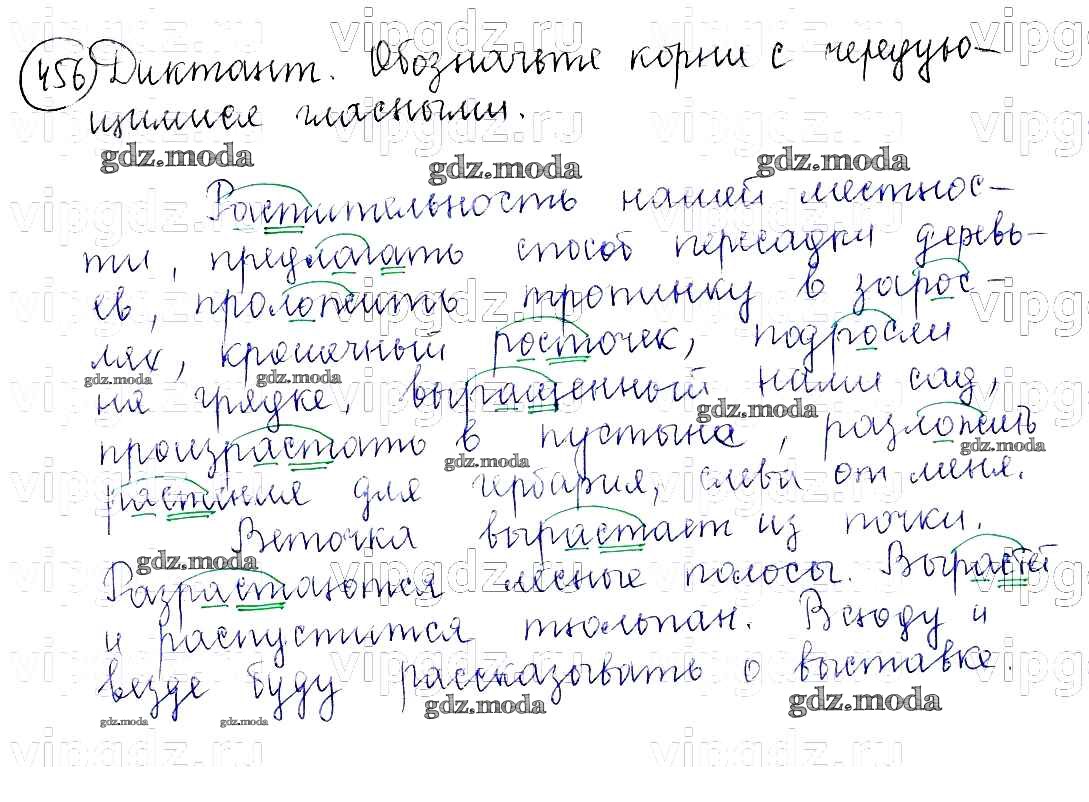 456 Диктант. Обозначьте корни с чередую-
щимися гласными.
Растительность нашей местнос-
ти, предлагать способ пересадки деревь-
ев, проложить тропинку в зарос-
лях, крошечный росточек, подросли
на грядке, выращенный нами сад,
произрастать в пустыне, разложить
растения для гербария, слева от меня.
Веточка вырастает из почки.
Разрастаются лесные полосы. Вырастет
и распустится тюльпан. Всюду и
везде буду рассказывать о выставке.
gdz.moda
vipgdz.ru